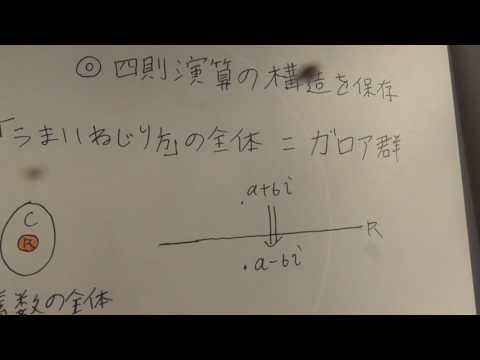 ◎ 四則演算の構造を保存
「うまいねじり方」の全体 = ガロア群
C
R
.a+bi
R
.a-bi
数の全体